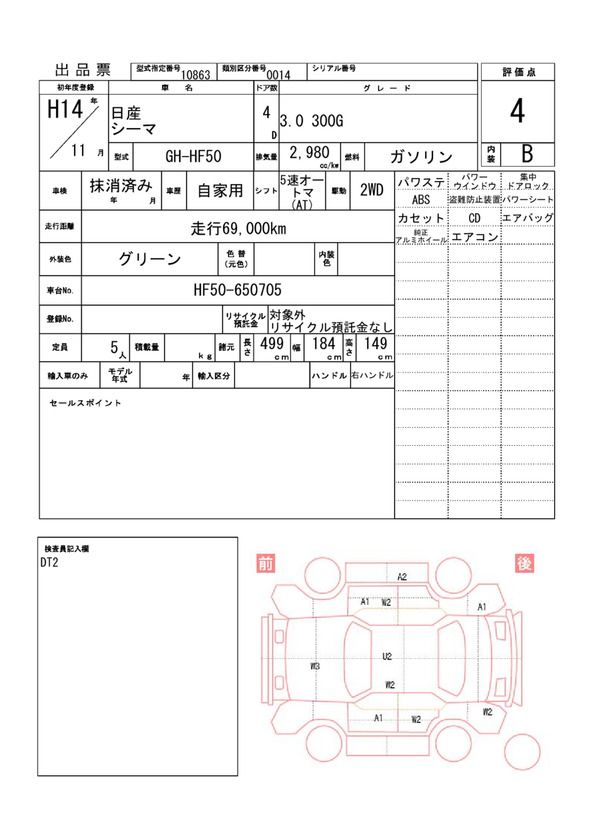 出品票 型式指定番号 10863 類別区分番号 0014 シリアル番号
評価点
初年度登録 車 名 ドア数 グレード
H14 年
11 月
日産
シーマ
4 D
3.0 300G
4
型式 GH-HF50 排気量 2,980 cc/kw 燃料 ガソリン
内装 B
車検 抹消済み 年 月 車歴 自家用 シフト 5速オートマ(AT) 駆動 2WD
パワステ パワーウインドウ 集中ドアロック
ABS 盗難防止装置 パワーシート
カセット CD エアバッグ
純正アルミホイール エアコン
走行距離 走行69,000km
外装色 グリーン 色替(元色) 内装色
車台No. HF50-650705
登録No. リサイクル預託金 対象外
リサイクル預託金なし
定員 5人 積載量 kg 諸元 長さ 499 cm 幅 184 cm 高さ 149 cm
輸入車のみ モデル年式 年 輸入区分 ハンドル 右ハンドル
セールスポイント
検査員記入欄
DT2
前 後
A2
A1 W2 A1
U2
W3
W2
A1 W2 W2